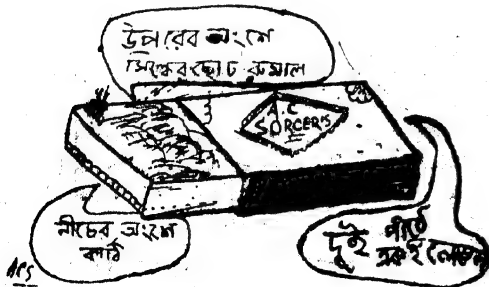 উপরের অংশে
সিল্কের ছোট রুমাল
A.C
SORCER'S
নীচের অংশে
কাঠি
দুই পীঠে
একই লেবেল